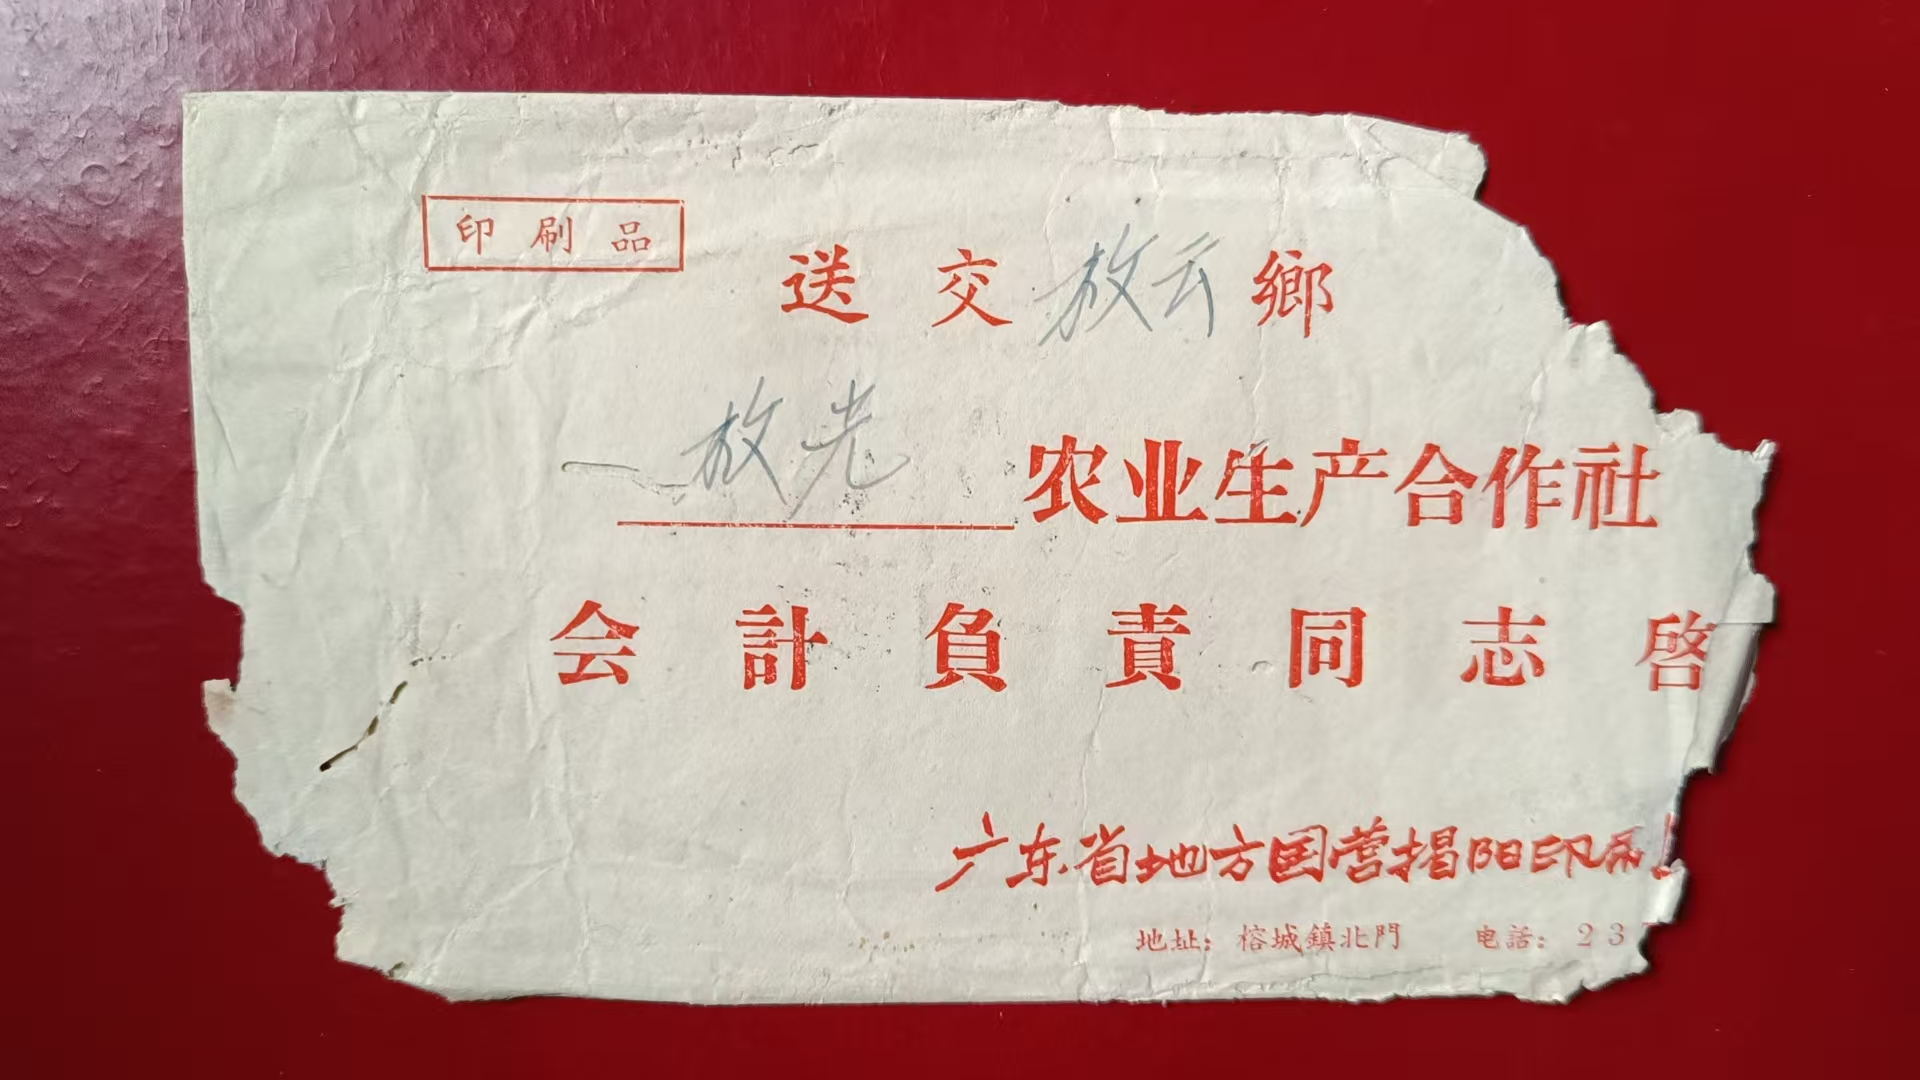 印刷品
送交放云鄉
放光农业生产合作社
会計負責同志啓
广东省地方国营揭阳印刷
地址：榕城鎮北門 电話：23